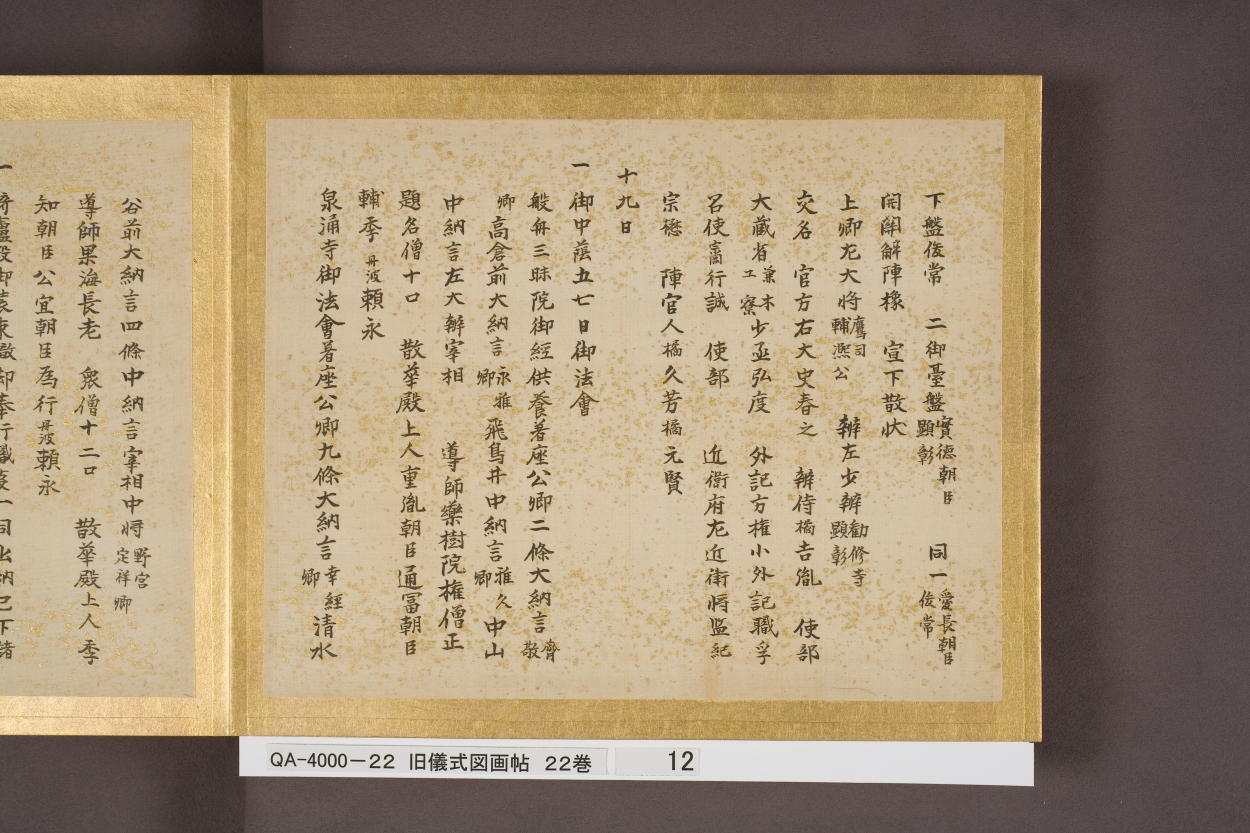 下盤俊常　二御臺盤實德朝臣顕彰　同一愛長朝臣俊常
開闔解陣椽　宣下散状
上卿左大将鷹司輔凞公　辨左少辨勧修寺顕彰
交名　官方右大史春之　辨侍橘吉胤　使部
大蔵省兼木工寮少丞弘度　外記方権小外記職孚
召使行誠　使部　近衛府左近衛将監紀
宗懋　陣官人橘久芳橘元賢
十九日
一御中蔭五七日御法會
般舟三昧院御經供養著座公卿二條大納言齊敬
卿高倉前大納言永雅卿飛鳥井中納言雅久卿中山
中納言左大辨宰相　導師樂樹院権僧正
題名僧十口　散華殿上人重胤朝臣通冨朝臣
輔季丹波賴永
泉涌寺御法會著座公卿九條大納言幸經卿清水
谷前大納言四條中納言宰相中将野宮定祥卿
導師果海長老　衆僧十二口　散華殿上人季
知朝臣公宜朝臣為行丹波賴永
QA-4000-22 旧儀式図画帖 22巻 12